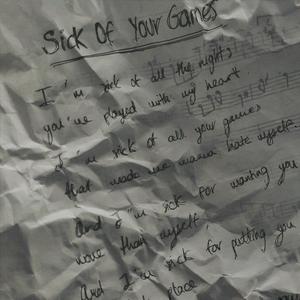 Sick Of Your Games
I'm sick of all the nights
you've played with my heart
I'm sick of all your games
that made me wanna hate myself
And I'm sick for wanting you
more than myself
And I'm sick for putting you
place